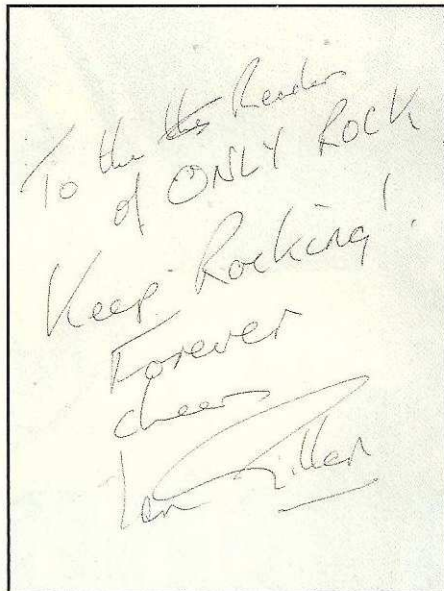 To the the Readers
of ONLY ROCK
Keep Rocking!
Forever
cheers
Ian Gillan